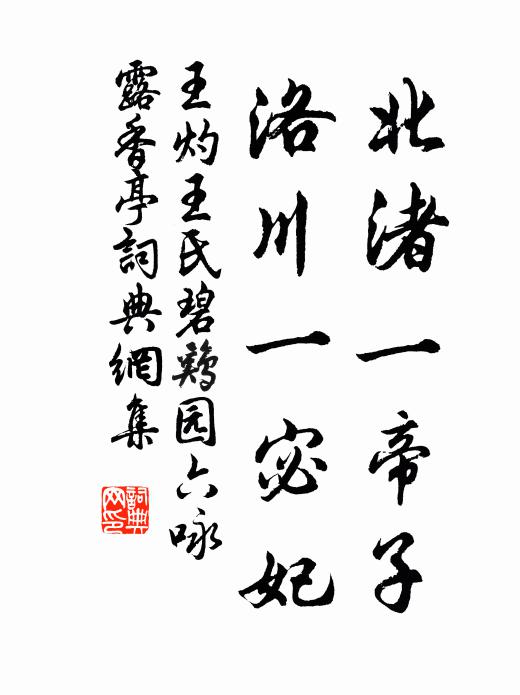 北渚一帝子
洛川一宓妃
王灼王氏碧鷄园六咏
露香亭詞典網集
詞典网印